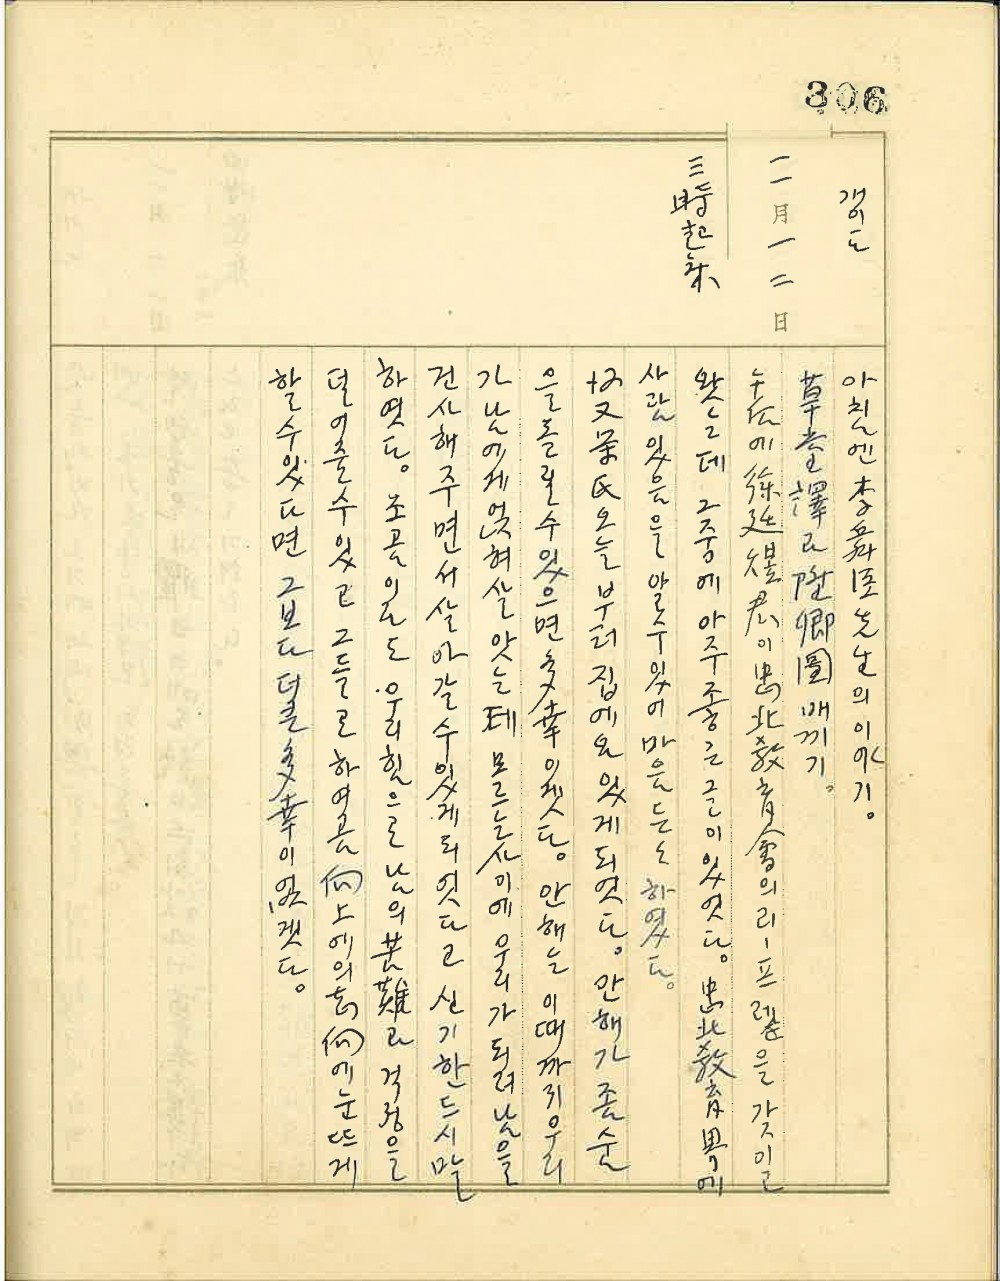 306
갬이도
二月一二日
三時起床
아침엔 李舜臣先生의 이야기.
草堂譯과 陞卿圖 배끼기.
午後에 徐廷煜君이 忠北敎育會의 리-프렡을 갖이고
왓는데 그중에 아주 좋은 글이 있엇다. 忠北敎育界에
사람 있음을 알 수 있어 마음 든든 하였다.
氏 오늘부터 집에 와 있게 되엿다. 안해가 좀 숨
을 돌릴 수 있으면 多幸이겟다. 안해는 이때까지 우리
가 남에게 얹혀 살앗는데 모르는 사이에 우리가 되려 남을
건사해 주면서 살아갈 수 있게 되엿다고 신기한드시 말
하엿다. 조곰이라도 우리 힘으로 남의 苦難과 걱정을
덜어줄 수 있고 그들로 하여금 向上에의 志向에 눈뜨게
할 수 있다면 그보다 더 큰 多幸이 없겟다.